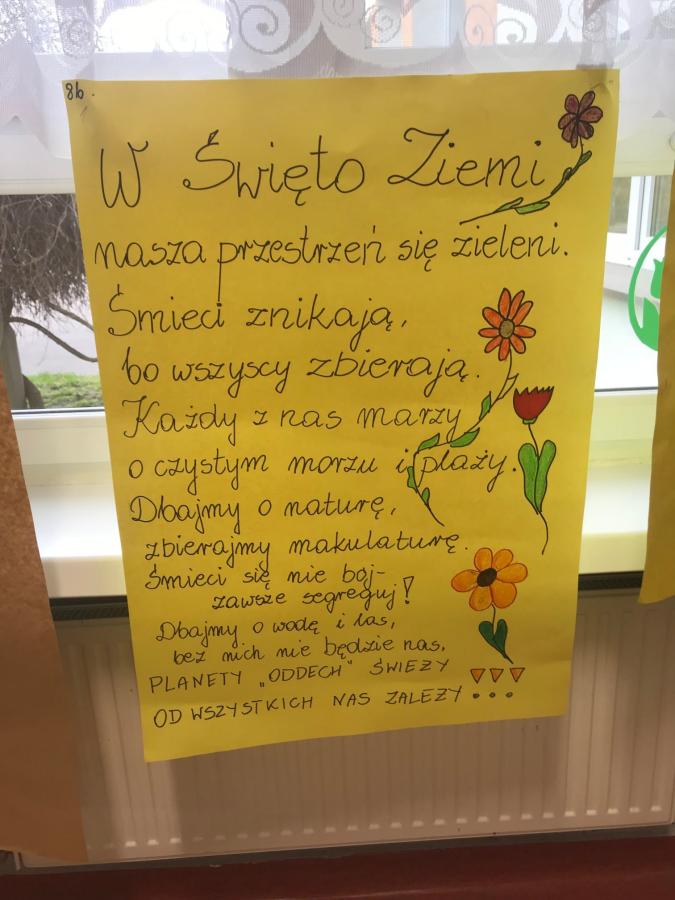 8b.
W Święto Ziemi
nasza przestrzeń się zieleni.
Śmieci znikają,
bo wszyscy zbierają.
Każdy z nas marzy
o czystym morzu i plaży.
Dbajmy o naturę,
zbierajmy makulaturę.
Śmieci się nie bój-
zawsze segreguj!
Dbajmy o wodę i las,
bez nich nie będzie nas.
PLANETY „ODDECH" ŚWIEŻY
OD WSZYSTKICH NAS ZALEŻY...